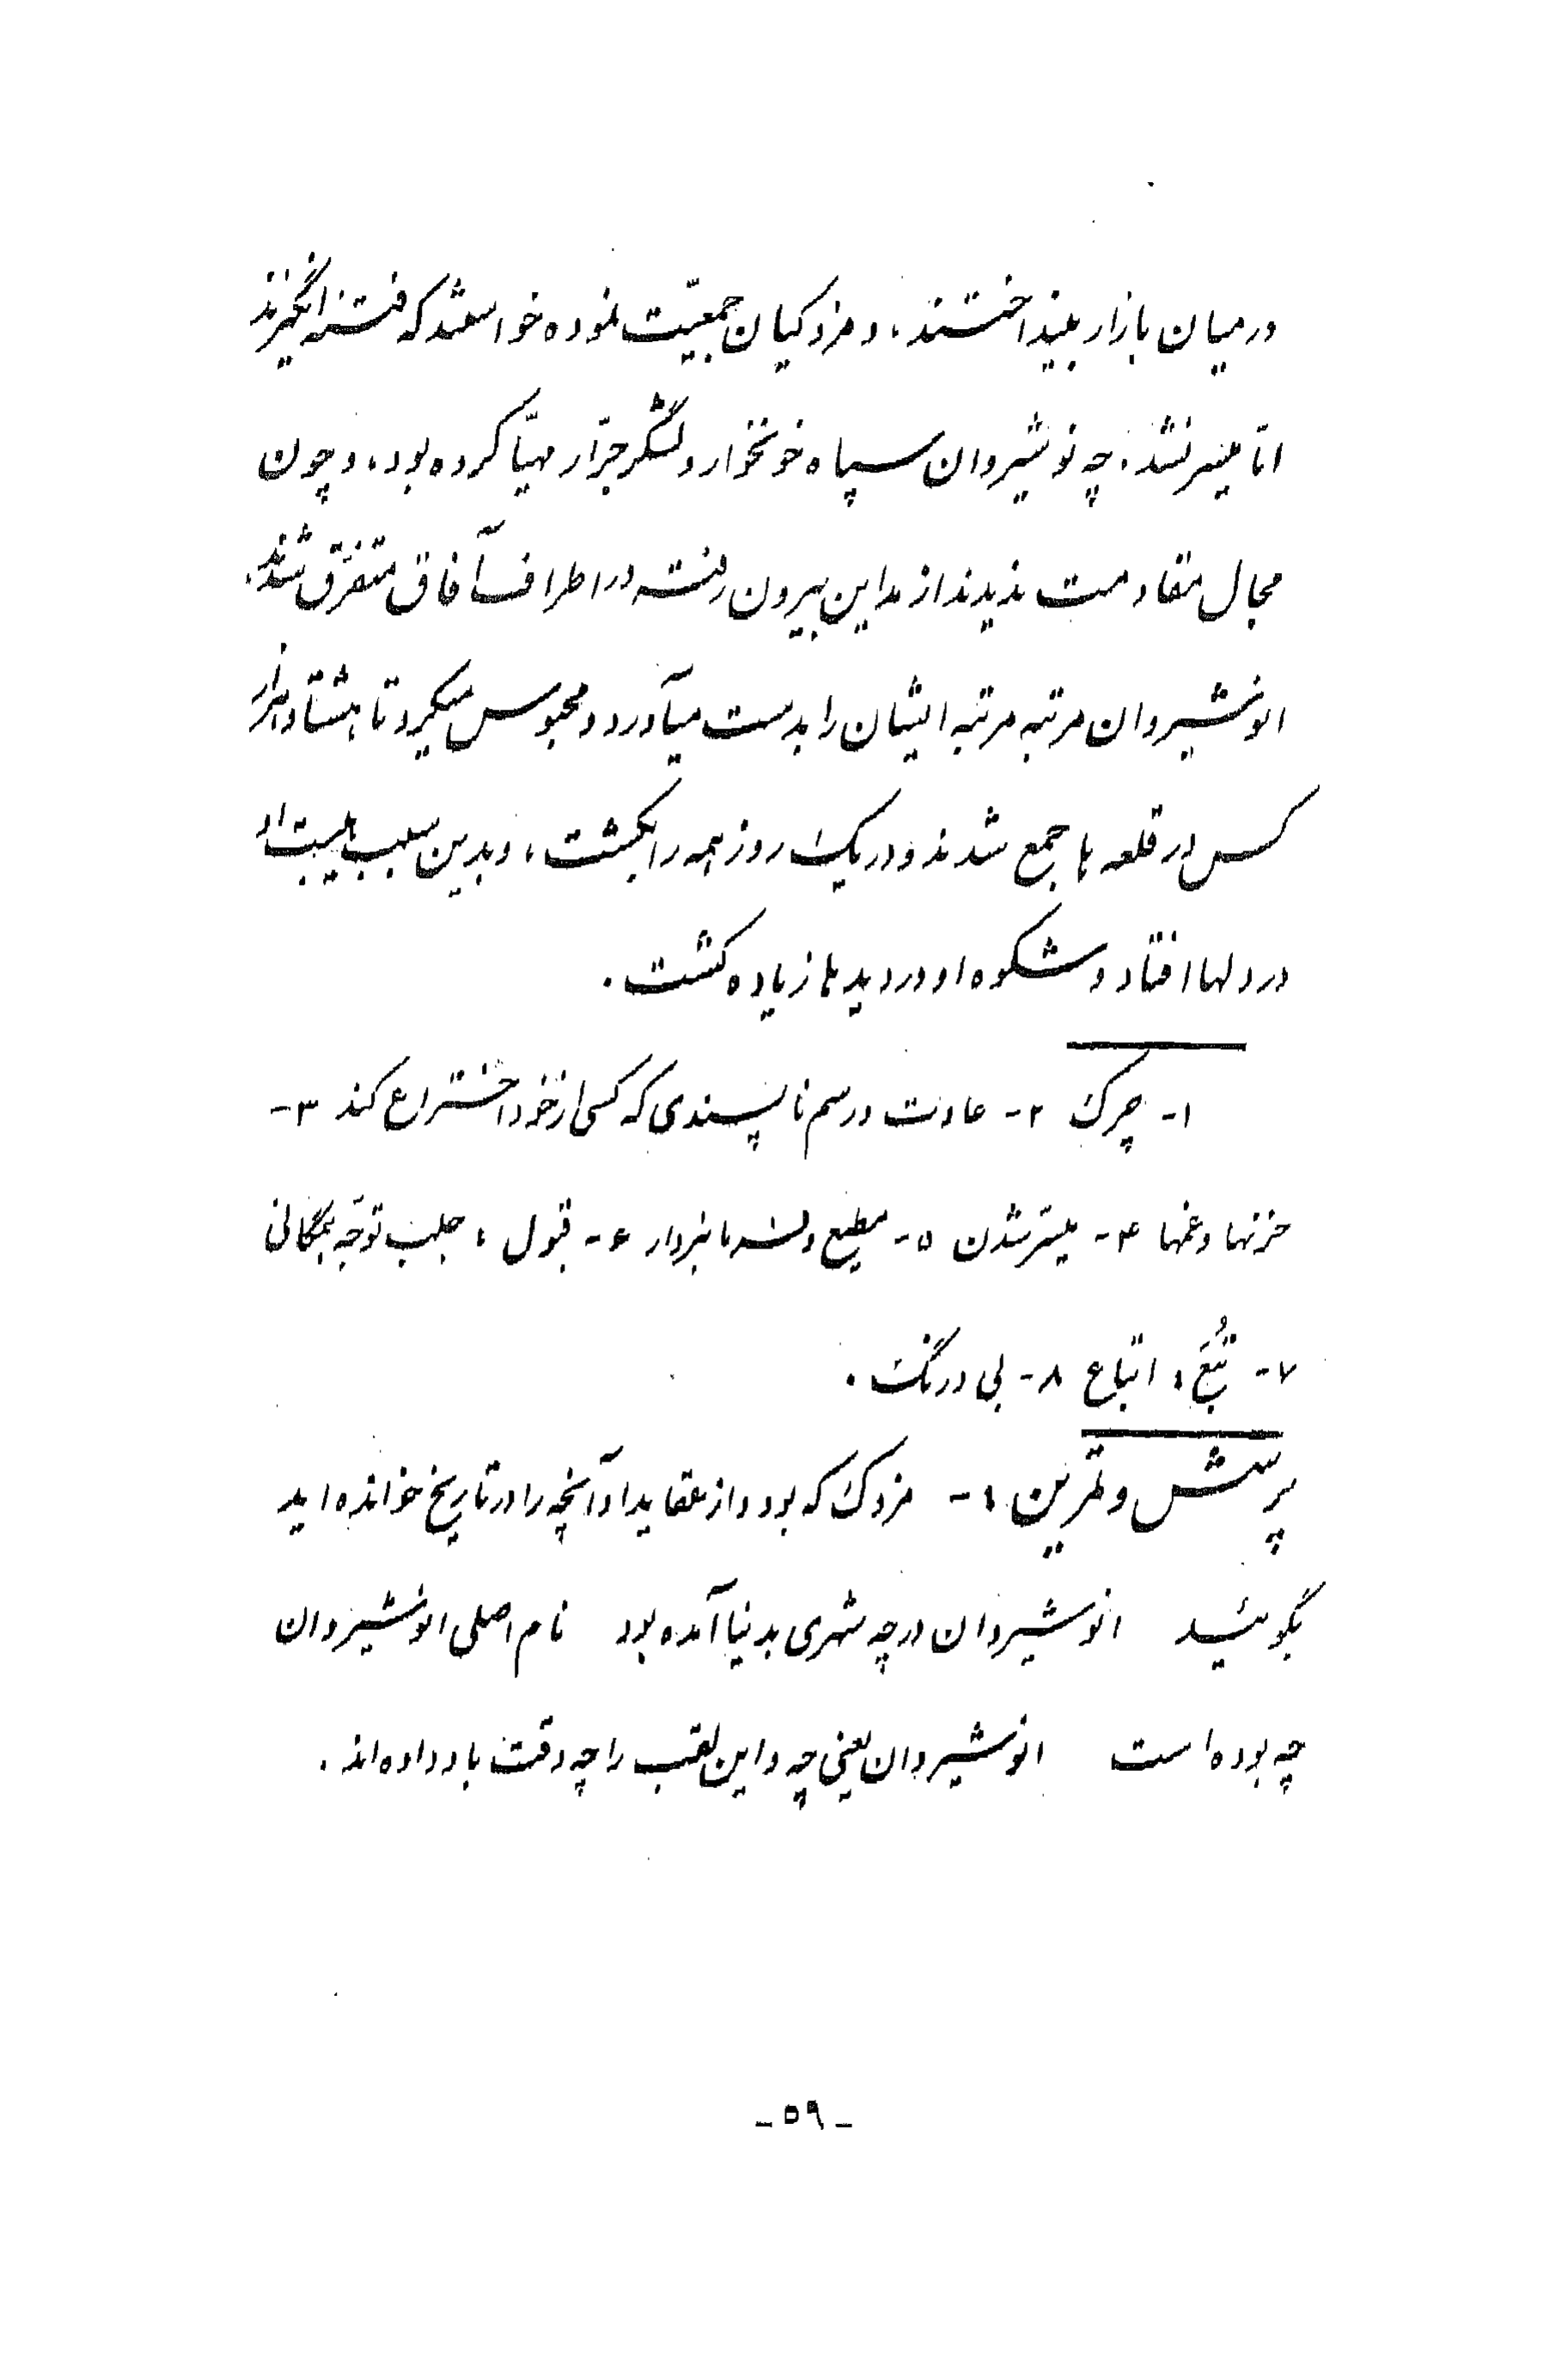 در میان بازار بینداختند، و مزدکیان جمعیّت نموده خواستند که فتنه انگیزند
امّا میسر نشد، چه نوشیروان سپاه خونخوار و لشگر جرّار مهیّا کرده بود، و چون
مجال مقاومت ندیدند از مداین بیرون رفته در اطراف آفاق متفرّق شدند،
انوشیروان مرتبه مرتبه ایشان را بدست میآورد و محبوس میکرد تا هشتاد هزار
کس در قلعه ها جمع شدند و در یک روز همه را بکشت، و بدین سبب هیبت او
در دلها افتاد و شکوه او در دیده ها زیاده گشت.
۱- چرک ۲- عادت و رسم ناپسندی که کسی از خود اختراع کند ۳-
حزنها و غمها ۴- میسّر شدن ۵- مطیع و فرمانبردار ۶- قبول، جلب توجّه همگانی
۷- تُبَّع، اتباع ۸- بی درنگ.
پرسش و تمرین ۱- مزدک که بود و از عقاید او آنچه را در تاریخ خوانده اید
بگوئید انوشیروان در چه شهری بدنیا آمده بود نام اصلی انوشیروان
چه بوده است انوشیروان یعنی چه و این لقب را چه وقت باو داده اند.
-۵۹-